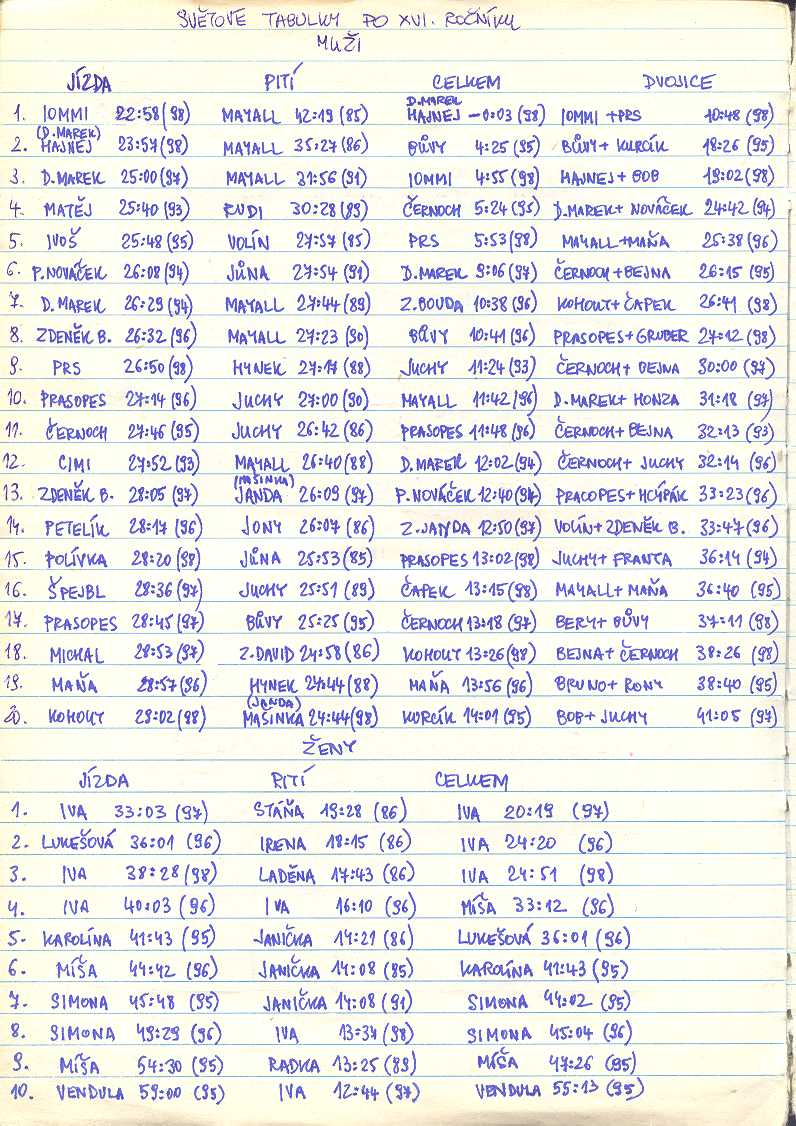 SVĚTOVÉ TABULKY PO XVI. ROČNÍKU
MUŽI
JÍZDA PITÍ CELKEM DVOJICE
1. IOMMI 22:58 (98) MAYALL 42:19 (85) D.MAREK HAJNEJ -0:03 (98) IOMMI + PRS 10:48 (98)
2. (D.MAREK) HAJNEJ 23:57 (98) MAYALL 35:27 (86) BŮVY 4:25 (95) BŮVY + KURCÍK 18:26 (95)
3. D.MAREK 25:00 (97) MAYALL 31:56 (91) IOMMI 4:55 (98) HAJNEJ + BOB 19:02 (98)
4. MATĚJ 25:40 (93) RUDI 30:28 (89) ČERNOCH 5:24 (95) D.MAREK + NOVÁČEK 24:42 (94)
5. IVOŠ 25:48 (95) VOLÍN 27:57 (85) PRS 5:53 (98) MAYALL + MAŇA 25:38 (96)
6. P.NOVÁČEK 26:08 (94) JŮNA 27:54 (91) D.MAREK 9:06 (97) ČERNOCH + BEJNA 26:15 (95)
7. D.MAREK 26:29 (94) MAYALL 27:44 (89) Z.BOUDA 10:38 (96) KOHOUT + ČAPEK 26:41 (98)
8. ZDENĚK B. 26:32 (96) MAYALL 27:23 (90) BŮVY 10:41 (96) PRASOPES + GRUBER 27:12 (98)
9. PRS 26:50 (98) HYNEK 27:17 (88) JUCHY 11:24 (93) ČERNOCH + BEJNA 30:00 (97)
10. PRASOPES 27:14 (96) JUCHY 27:00 (90) MAYALL 11:42 (96) D.MAREK + HONZA 31:18 (97)
11. ČERNOCH 27:46 (95) JUCHY 26:42 (86) PRASOPES 11:48 (96) ČERNOCH + BEJNA 32:13 (93)
12. CIMI 27:52 (93) MAYALL 26:40 (88) D.MAREK 12:02 (94) ČERNOCH + JUCHY 32:14 (96)
13. ZDENĚK B. 28:05 (97) (MAŠINKA) JANDA 26:09 (97) P.NOVÁČEK 12:40 (94) PRACOPES + HCÝPÁK 33:23 (96)
14. PETELÍK 28:17 (96) JONY 26:07 (86) Z.JANDA 12:50 (97) VOLÍN + ZDENĚK B. 33:47 (96)
15. POLÍVKA 28:20 (98) JŮNA 25:53 (85) PRASOPES 13:02 (98) JUCHY + FRANTA 36:14 (94)
16. ŠPEJBL 28:36 (97) JUCHY 25:51 (89) ČAPEK 13:15 (98) MAYALL + MAŇA 36:40 (95)
17. PRASOPES 28:45 (97) BŮVY 25:25 (95) ČERNOCH 13:18 (97) BERY + BŮVY 37:11 (98)
18. MICHAL 28:53 (97) Z.DAVID 24:58 (86) KOHOUT 13:26 (98) BEJNA + ČERNOCH 38:26 (98)
19. MAŇA 28:57 (96) HYNEK 24:44 (88) MAŇA 13:56 (96) BRUNO + RONY 38:40 (95)
20. KOHOUT 29:02 (98) (JANDA) MAŠINKA 24:44 (98) KURCÍK 14:01 (95) BOB + JUCHY 41:05 (97)
ŽENY
JÍZDA PITÍ CELKEM
1. IVA 33:03 (97) STÁŇA 19:28 (86) IVA 20:19 (97)
2. LUKEŠOVÁ 36:01 (96) IRENA 18:15 (86) IVA 24:20 (96)
3. IVA 38:28 (98) LADĚNA 17:43 (86) IVA 24:51 (98)
4. IVA 40:03 (96) IVA 16:10 (96) MÍŠA 33:12 (96)
5. KAROLÍNA 41:43 (95) JANIČKA 14:21 (86) LUKEŠOVÁ 36:01 (96)
6. MÍŠA 44:42 (96) JANIČKA 14:08 (85) KAROLÍNA 41:43 (95)
7. SIMONA 45:48 (95) JANIČKA 14:08 (91) SIMONA 44:02 (95)
8. SIMONA 49:29 (96) IVA 13:34 (98) SIMONA 45:04 (96)
9. MÍŠA 54:30 (95) RADKA 13:25 (89) MÍŠA 47:26 (95)
10. VENDULA 59:00 (95) IVA 12:44 (97) VENDULA 55:13 (95)